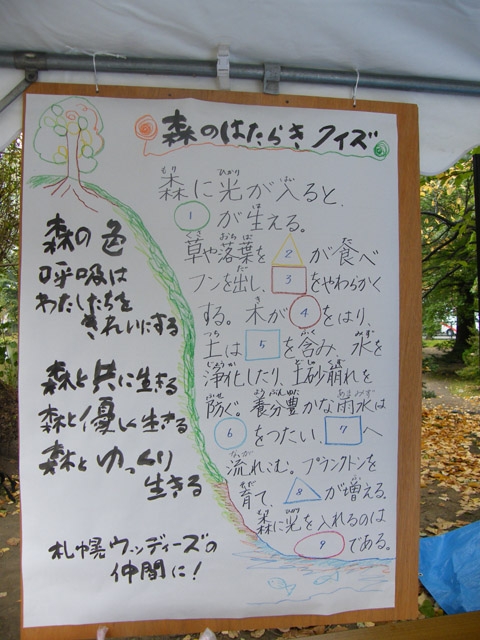 森のはたらきクイズ
森に光が入ると、
1 が生える。
草や落葉を 2 が食べ
フンを出し、3 をやわらかく
する。木が 4 をはり、
土は 5 を含み、水を
浄化したり、土砂崩れを
防ぐ。養分豊かな雨水は
6 をつたい、7 へ
流れこむ。プランクトンを
育て、8 が増える。
森に光を入れるのは
9 である。
森の色
呼吸は
わたしたちを
きれいにする
森と共に生きる
森と優しく生きる
森とゆっくり
生きる
札幌ウッディーズの
仲間に!